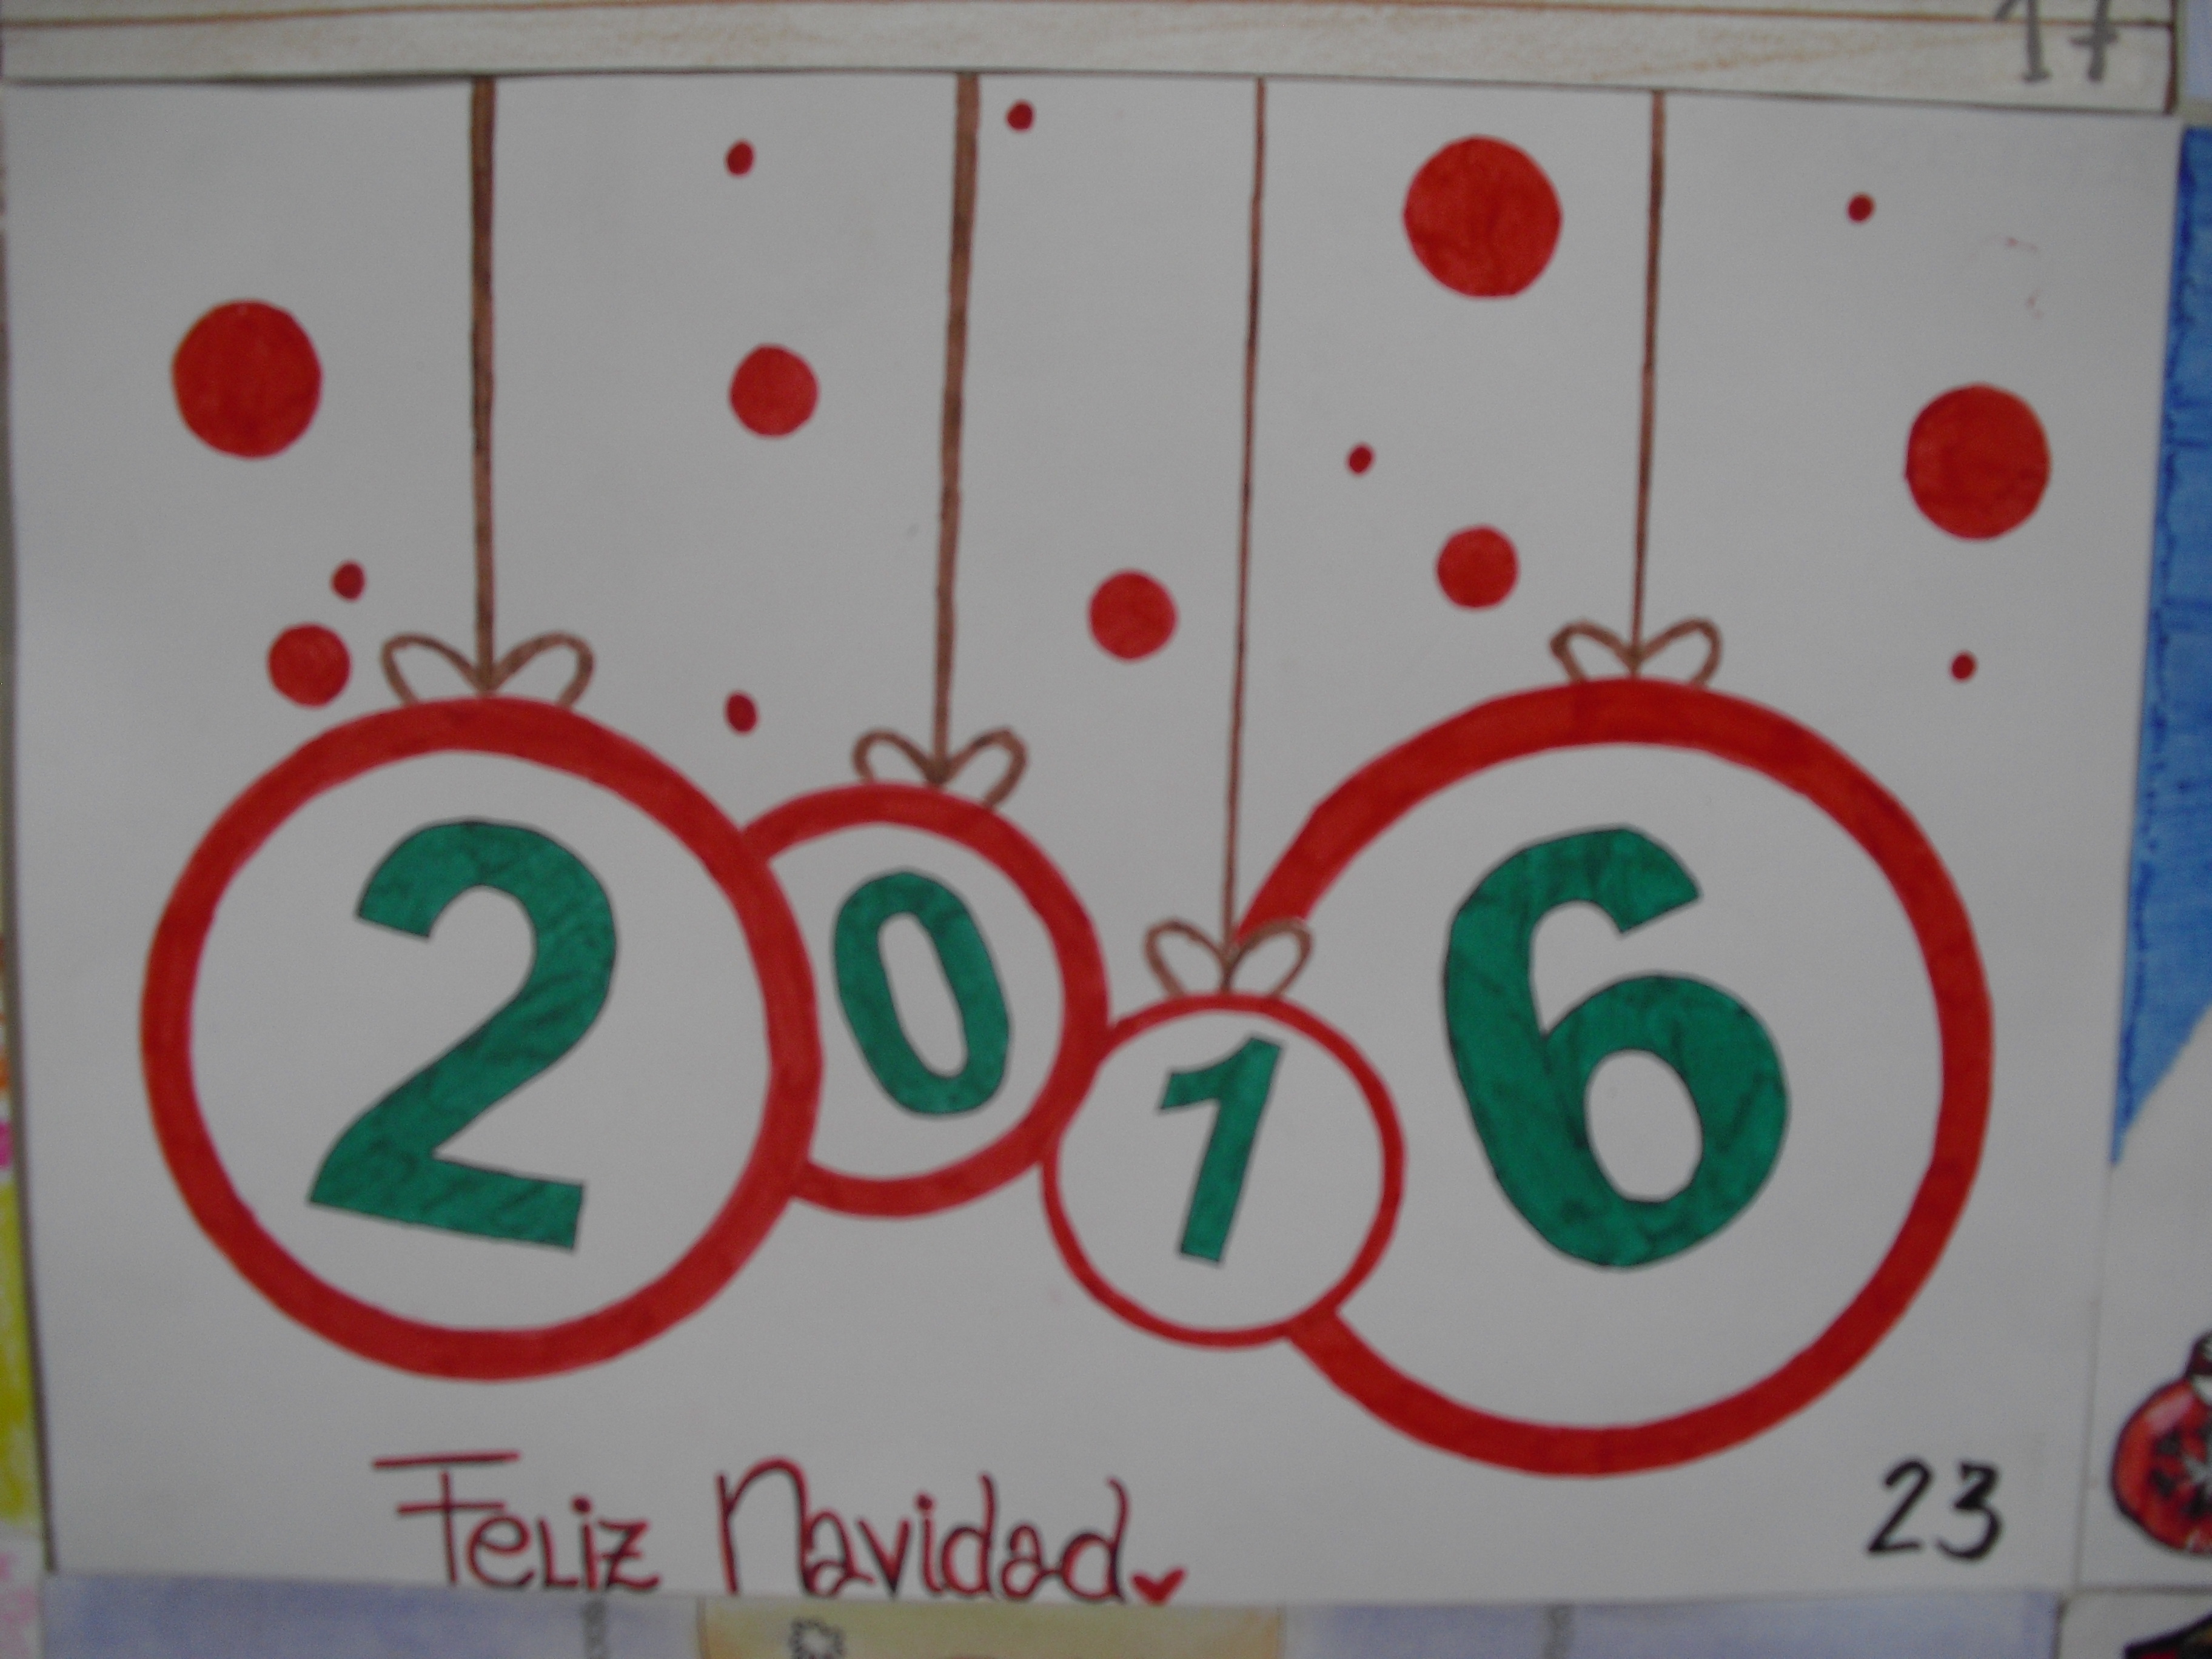 17
2016
Feliz Navidad
23